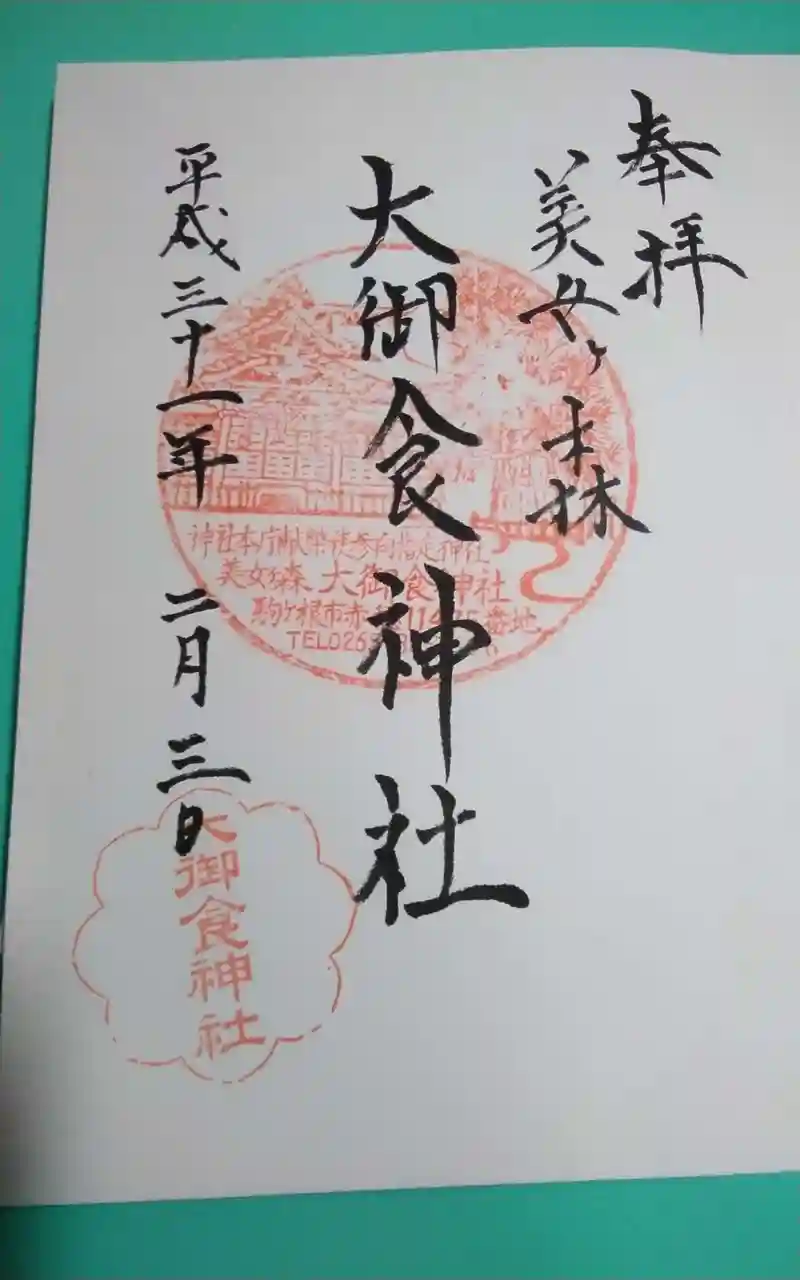 奉拝
美女ヶ森
大御食神社
平成三十一年 二月 三日
神社本庁献幣使参向指定神社
美女ヶ森 大御食神社
駒ヶ根市赤 番地
TEL026
大御食神社